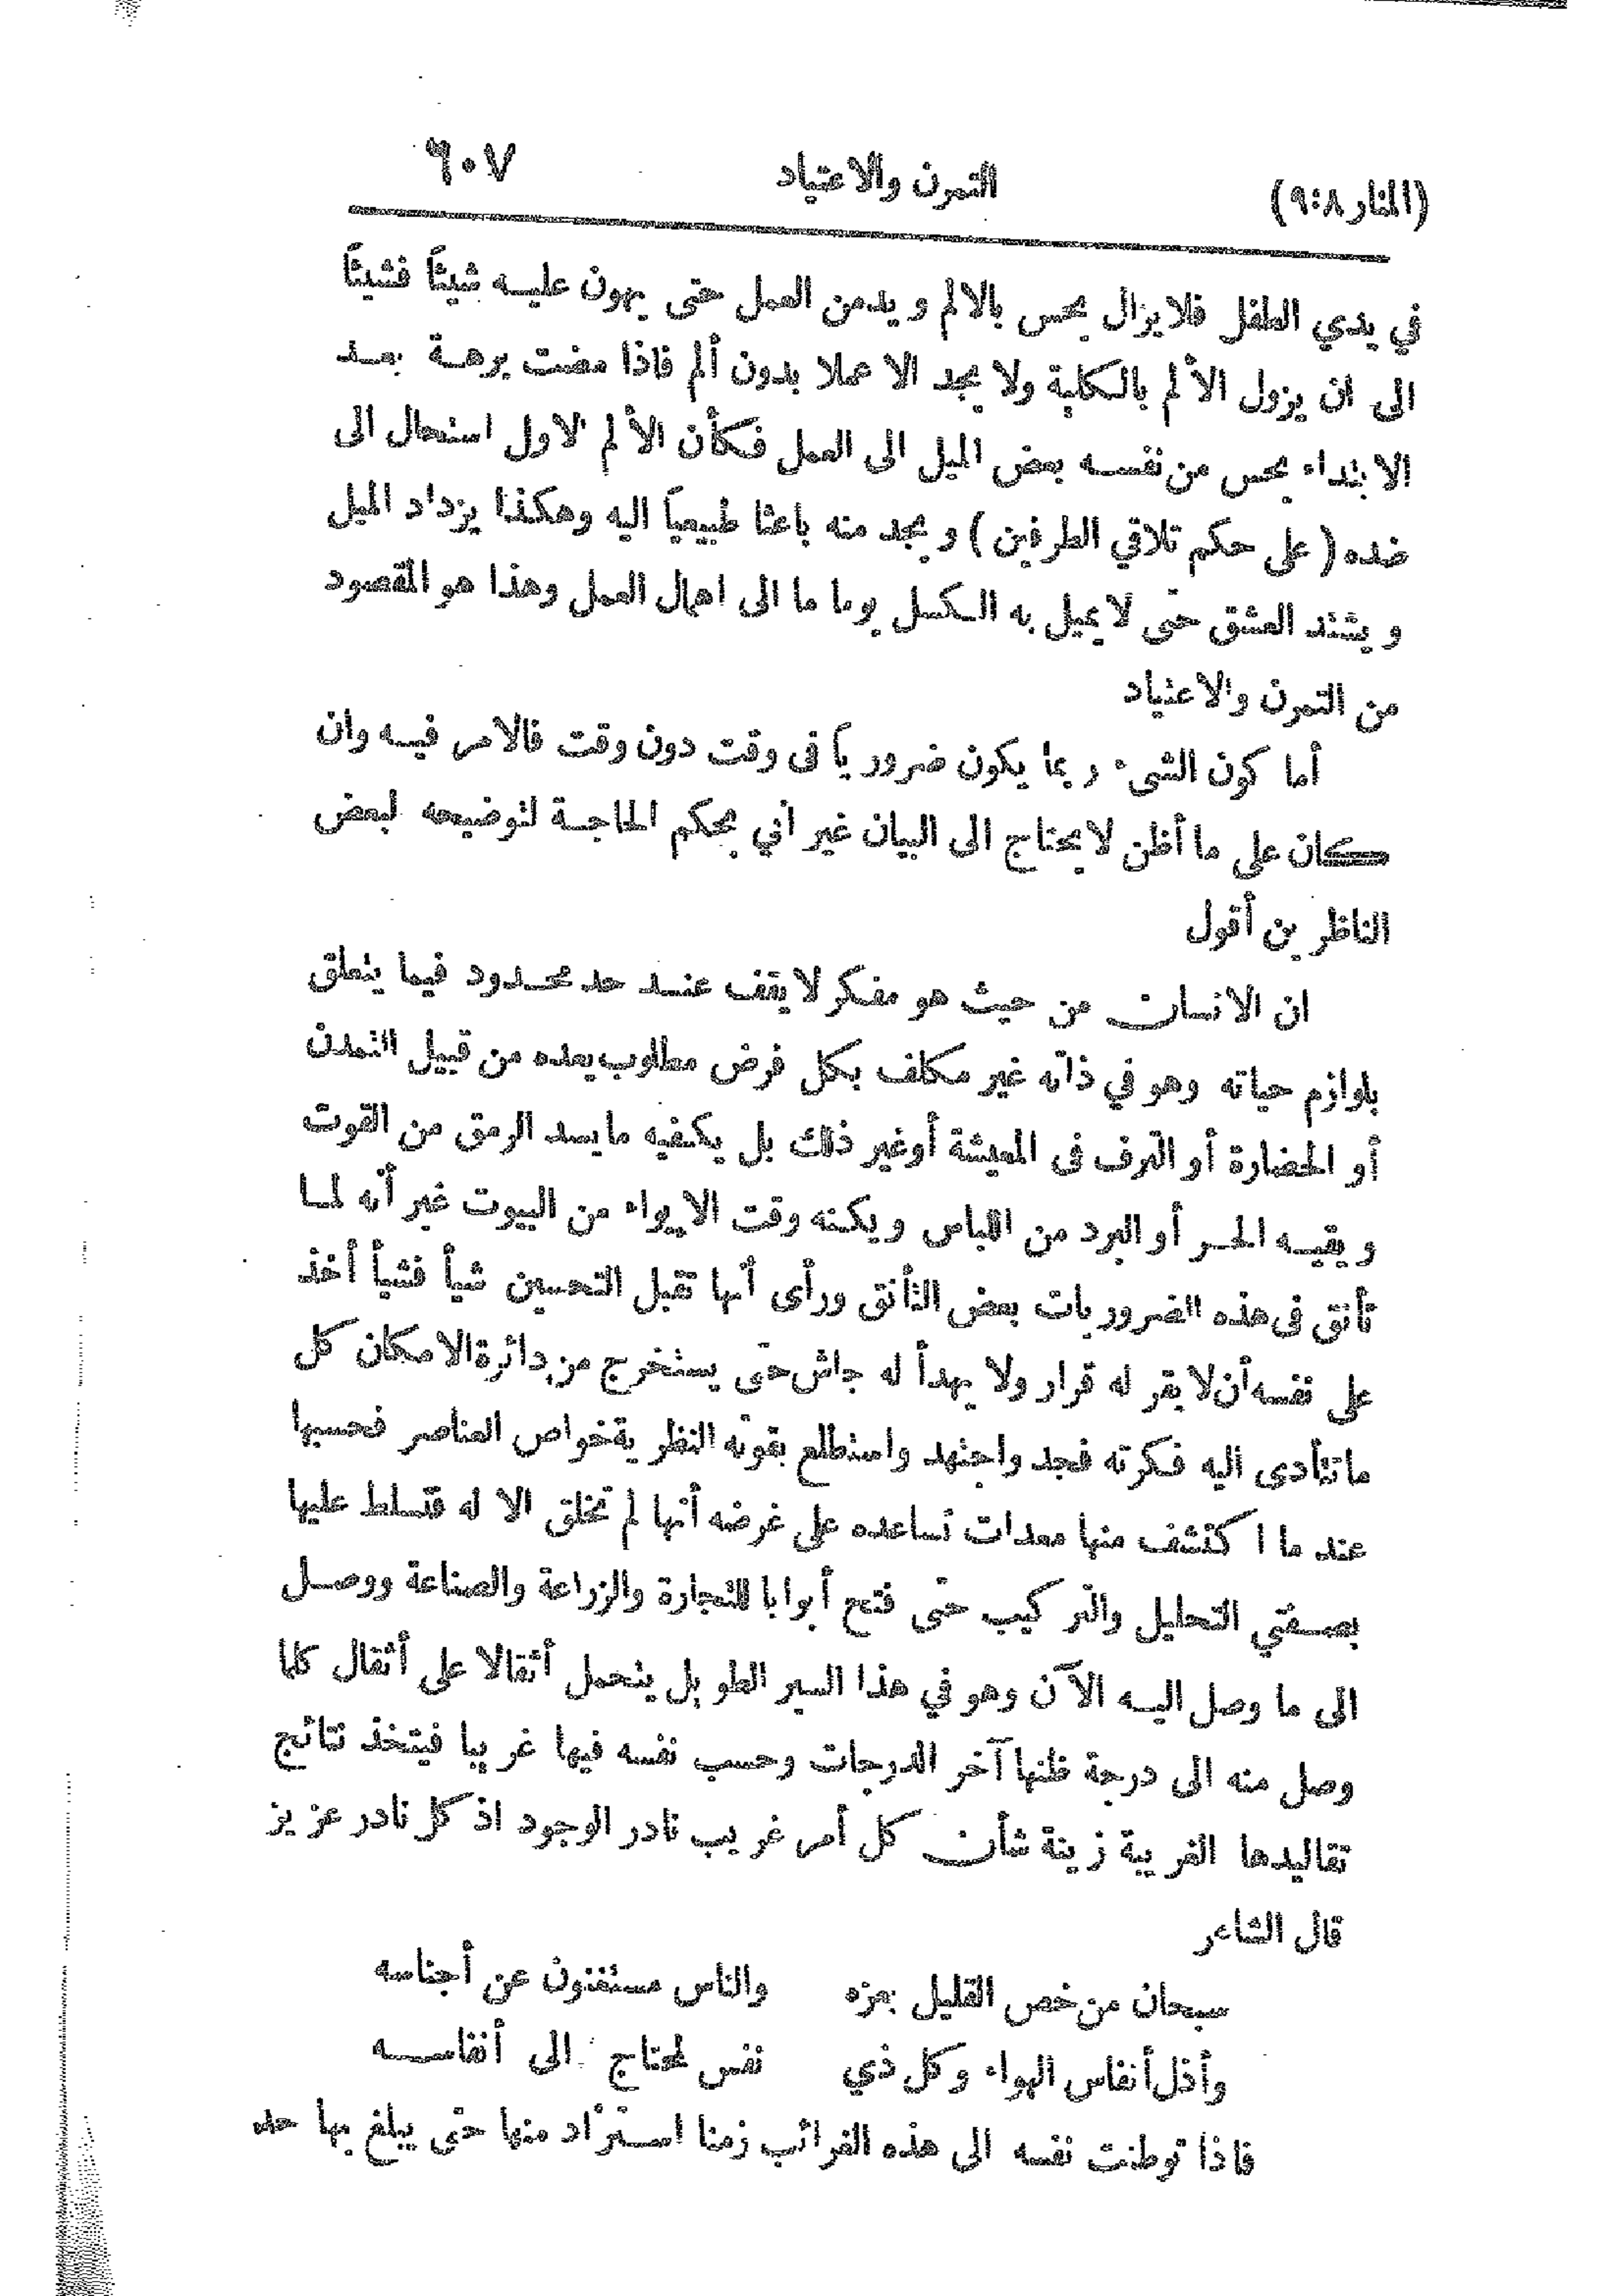 (المنار ٨:٩) التمرن والاعتياد ٦٠٧
في يدي الطفل فلا يزال يحس بالالم ويدمن العمل حتى يهون عليه شيئاً فشيئاً
الى ان يزول الألم بالكلية ولا يجد الا عملا بدون ألم فاذا مضت برهة بعد
الابتداء يحس من نفسه بعض الميل الى العمل فكأن الألم الاول استحال الى
ضده (على حكم تلاقي الطرفين) ويجد منه باعثا طبيعياً اليه وهكذا يزداد الميل
ويشتد العشق حتى لا يميل به الكسل يوما ما الى اهمال العمل وهذا هو المقصود
من التمرن والاعتياد
أما كون الشيء ربما يكون ضرورياً فى وقت دون وقت فالامر فيه وان
كان على ما أظن لا يحتاج الى البيان غير اني بحكم الحاجة لتوضيحه لبعض
الناظرين أقول
ان الانسان من حيث هو مفكر لا يقف عند حد محدود فيما يتعلق
بلوازم حياته وهو في ذاته غير مكلف بكل فرض مطلوب يعده من قبيل التمدن
أو الحضارة أو الترف فى المعيشة أو غير ذلك بل يكفيه ما يسد الرمق من القوت
ويقيه الحر أو البرد من اللباس ويكنه وقت الايواء من البيوت غير أنه لما
تأنق فى هذه الضروريات بعض التأنق ورأى أنها تقبل التحسين شيأ فشيأ أخذ
على نفسه أن لا يقر له قرار ولا يهدأ له جاش حتى يستخرج من دائرة الامكان كل
ما تتأدى اليه فكرته فجد واجتهد واستطلع بقوته النظرية خواص العناصر فحسبها
عند ما اكتشف منها معدات تساعده على غرضه أنها لم تخلق الا له فتسلط عليها
بصفتي التحليل والتركيب حتى فتح أبوابا للتجارة والزراعة والصناعة ووصل
الى ما وصل اليه الآن وهو في هذا السير الطويل يتحمل أثقالا على أثقال كلما
وصل منه الى درجة ظنها آخر الدرجات وحسب نفسه فيها غريبا فيتخذ نتائج
تقاليدها الغريبة زينة شأن كل أمر غريب نادر الوجود اذ كل نادر عزيز
قال الشاعر
سبحان من خص القليل بعزه والناس مستغنون عن أجناسه
وأذل أنفاس الهواء وكل ذي نفس لمحتاج الى أنفاسه
فاذا توطنت نفسه الى هذه الغرائب زمنا استزاد منها حتى يبلغ بها حد